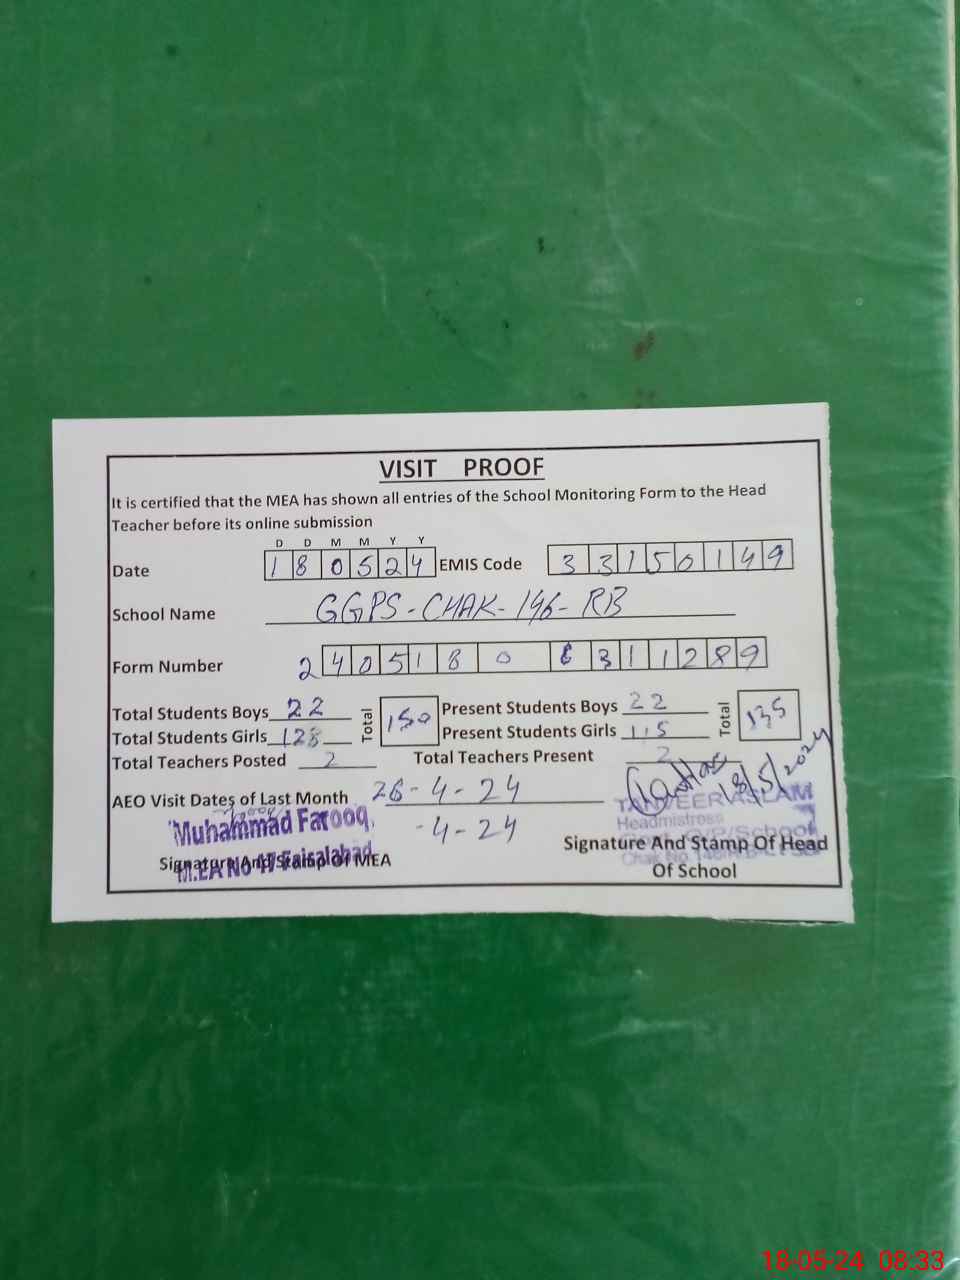 VISIT PROOF
It is certified that the MEA has shown all entries of the School Monitoring Form to the Head
Teacher before its online submission
D D M M Y Y
Date 180524 EMIS Code 33150149
School Name GGPS-CHAK-146-RB
Form Number 2405180 311289
Total Students Boys 22 Total 150 Present Students Boys 22 Total 135
Total Students Girls 128 Present Students Girls 115
Total Teachers Posted 2 Total Teachers Present 2
AEO Visit Dates of Last Month 26-4-24
-4-24
18/5/2024
Muhammad Farooq
M.EA No 17 Faisalabad
Signature And Stamp Of MEA
TANVEER ASLAM
Headmistress
Govt. G/P/School
Chak No. 146/R.B
Signature And Stamp Of Head
Of School
18-05-24 08:33